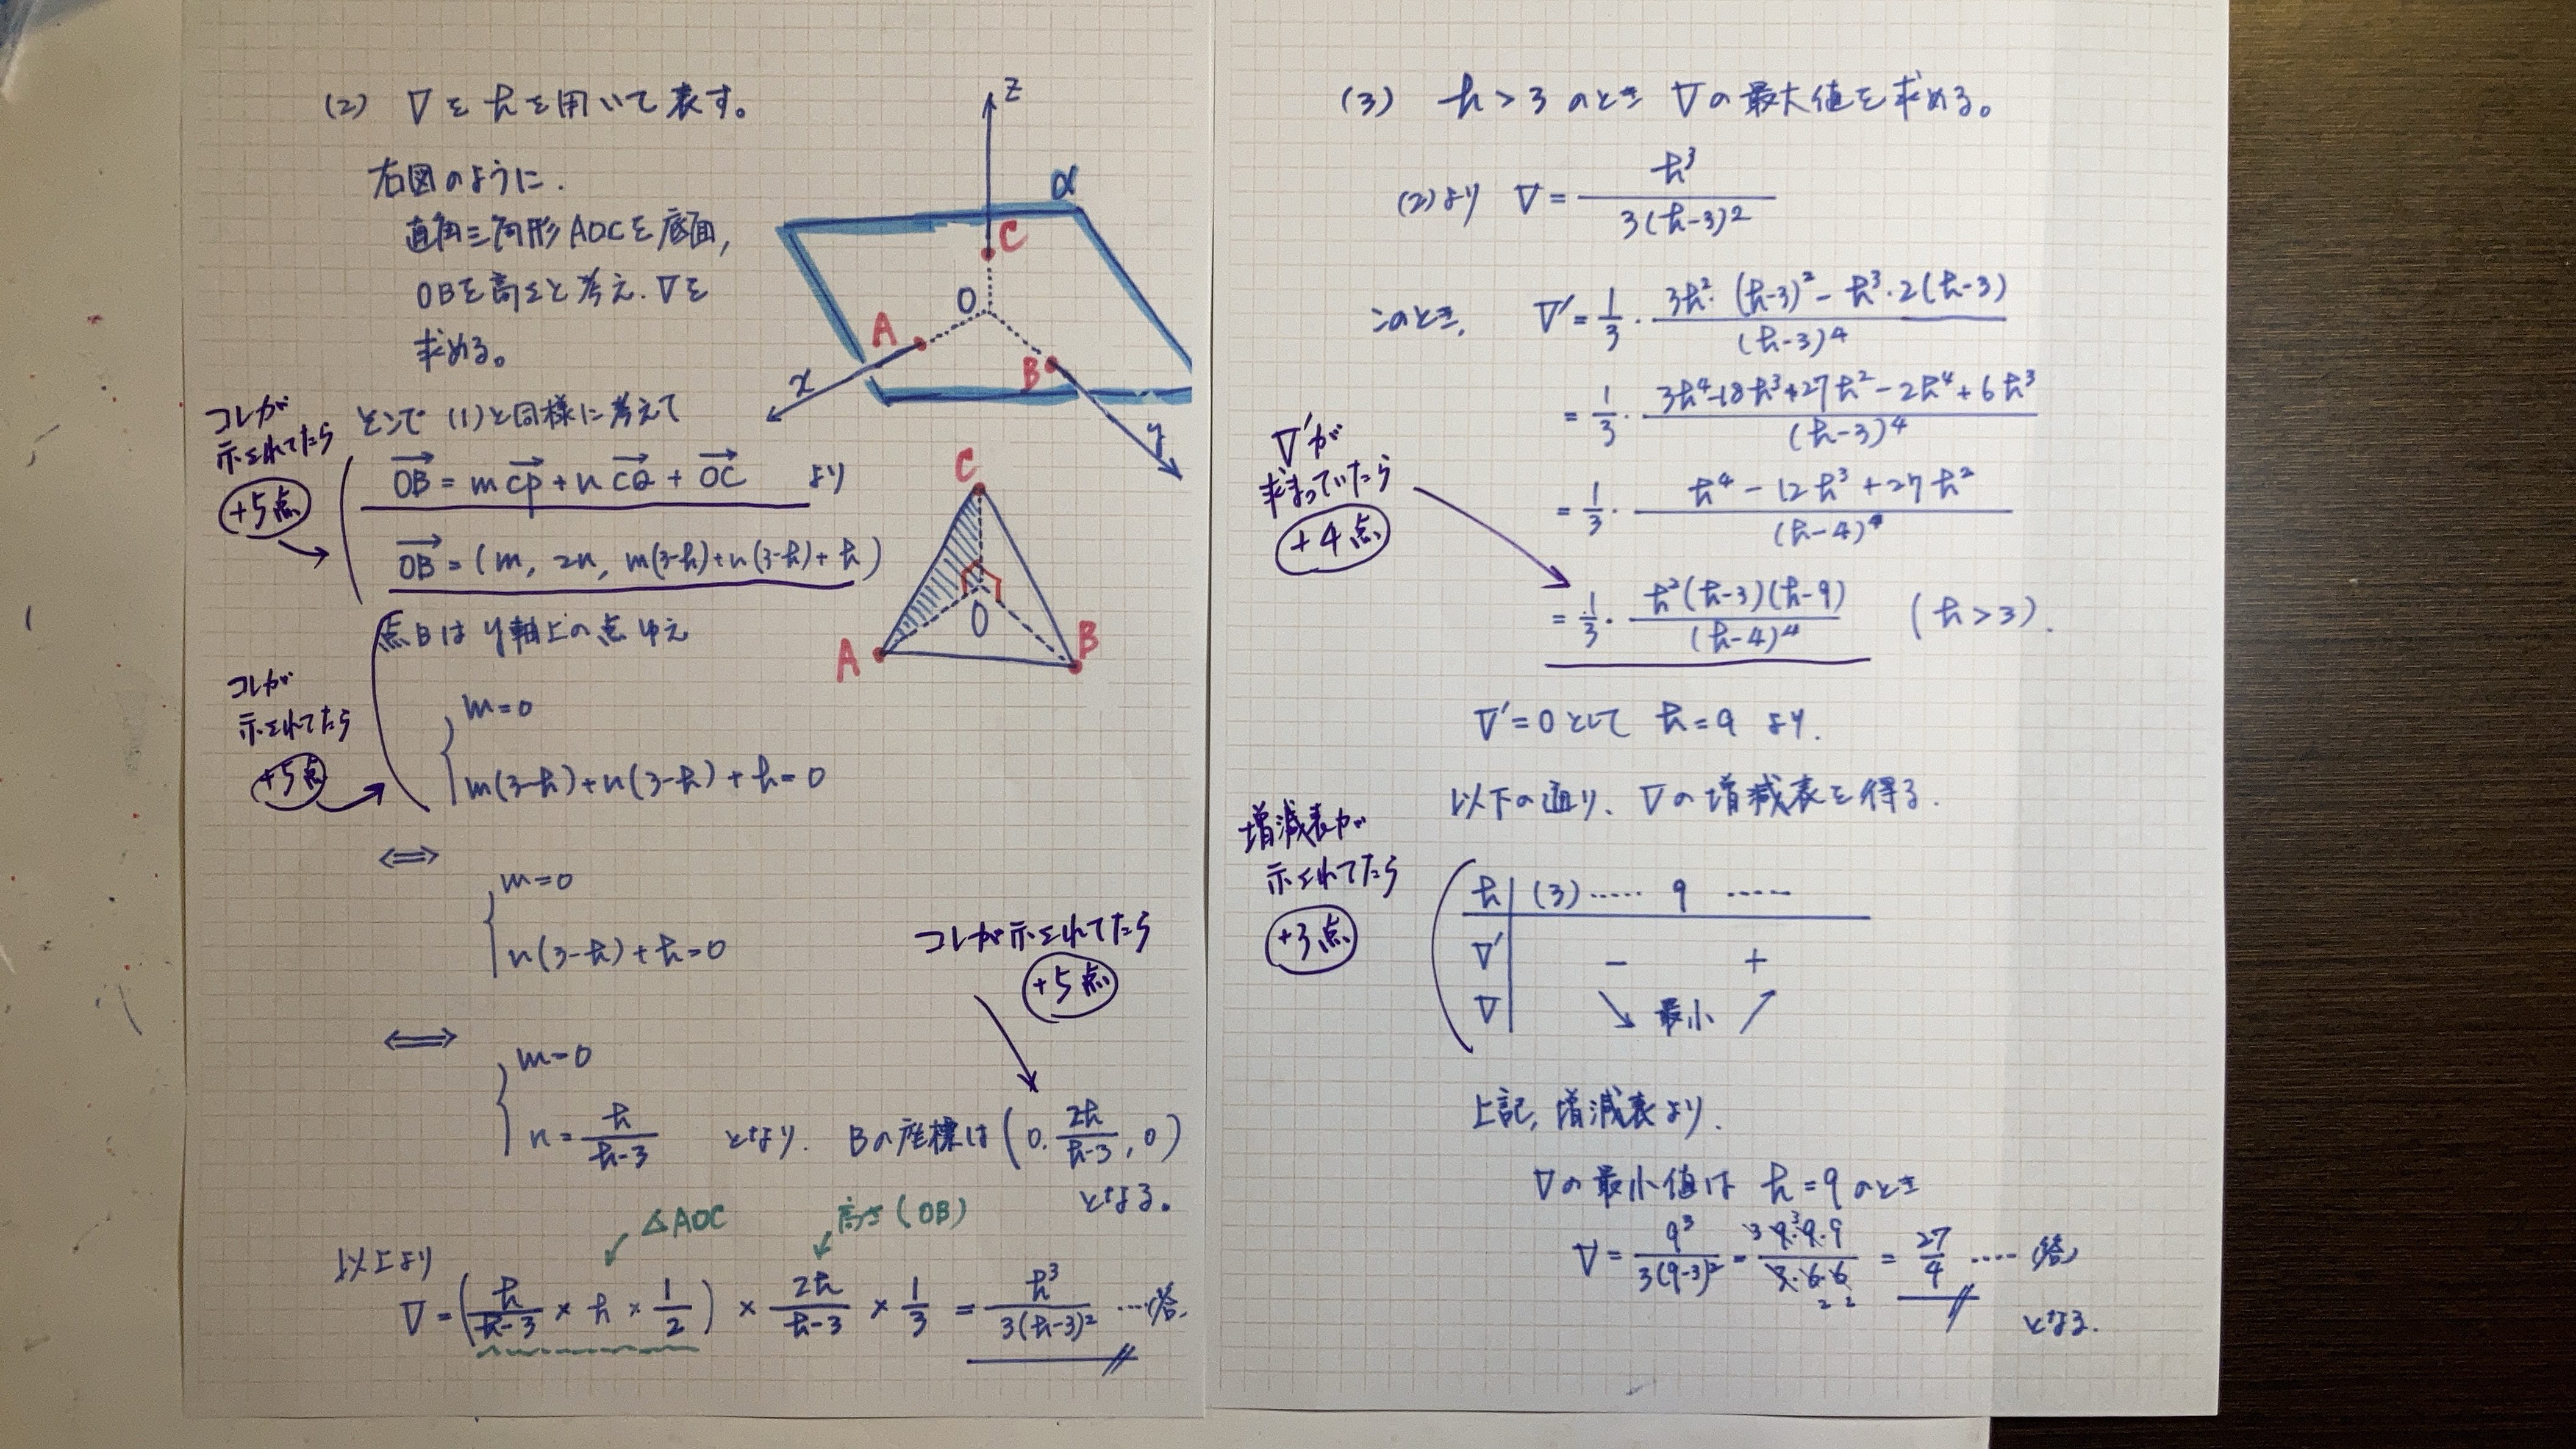 (2) Vをhを用いて表す。
右図のように.
直角三角形AOCを底面,
OBを高さと考え.Vを
求める。
z
α
C
O
A
B
x
y
コレが
示されてたら
+5点
そこで (1)と同様に考えて
OB = mCP + nCQ + OC より
OB = (m, 2n, m(3-h)+n(3-h)+h)
C
O
A
B
点Bはy軸上の点ゆえ
コレが
示されてたら
+5点
m=0
m(3-h)+n(3-h)+h=0
⇔
m=0
n(3-h)+h=0
コレが示されてたら
+5点
⇔
m=0
n=h/(h-3) となり. Bの座標は(0, 2h/(h-3), 0)
となる。
△AOC
高さ(OB)
以上より
V=(h/(h-3) × h × 1/2) × 2h/(h-3) × 1/3 = h³/3(h-3)² …(答)
(3) h>3のとき Vの最大値を求める。
(2)より V= h³/3(h-3)²
このとき, V'=1/3・(3h²・(h-3)²-h³・2(h-3))/(h-3)⁴
=1/3・(3h⁴-18h³+27h²-2h⁴+6h³)/(h-3)⁴
V'が
求まっていたら
+4点
=1/3・(h⁴-12h³+27h²)/(h-4)⁴
=1/3・h²(h-3)(h-9)/(h-4)⁴ (h>3).
V'=0として h=9より.
以下の通り、Vの増減表を得る.
増減表が
示されてたら
+3点
h (3) …… 9 ……
V' - +
V ↘ 最小 ↗
上記,増減表より.
Vの最小値は h=9のとき
V= 9³/3(9-3)² = 9・9・9/3・6・6 = 27/4 …(答)
となる.